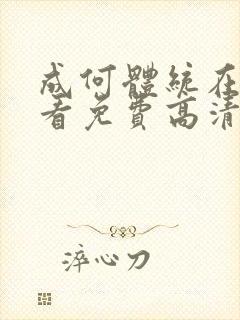 成何體統在
看免費高清
淬心刀